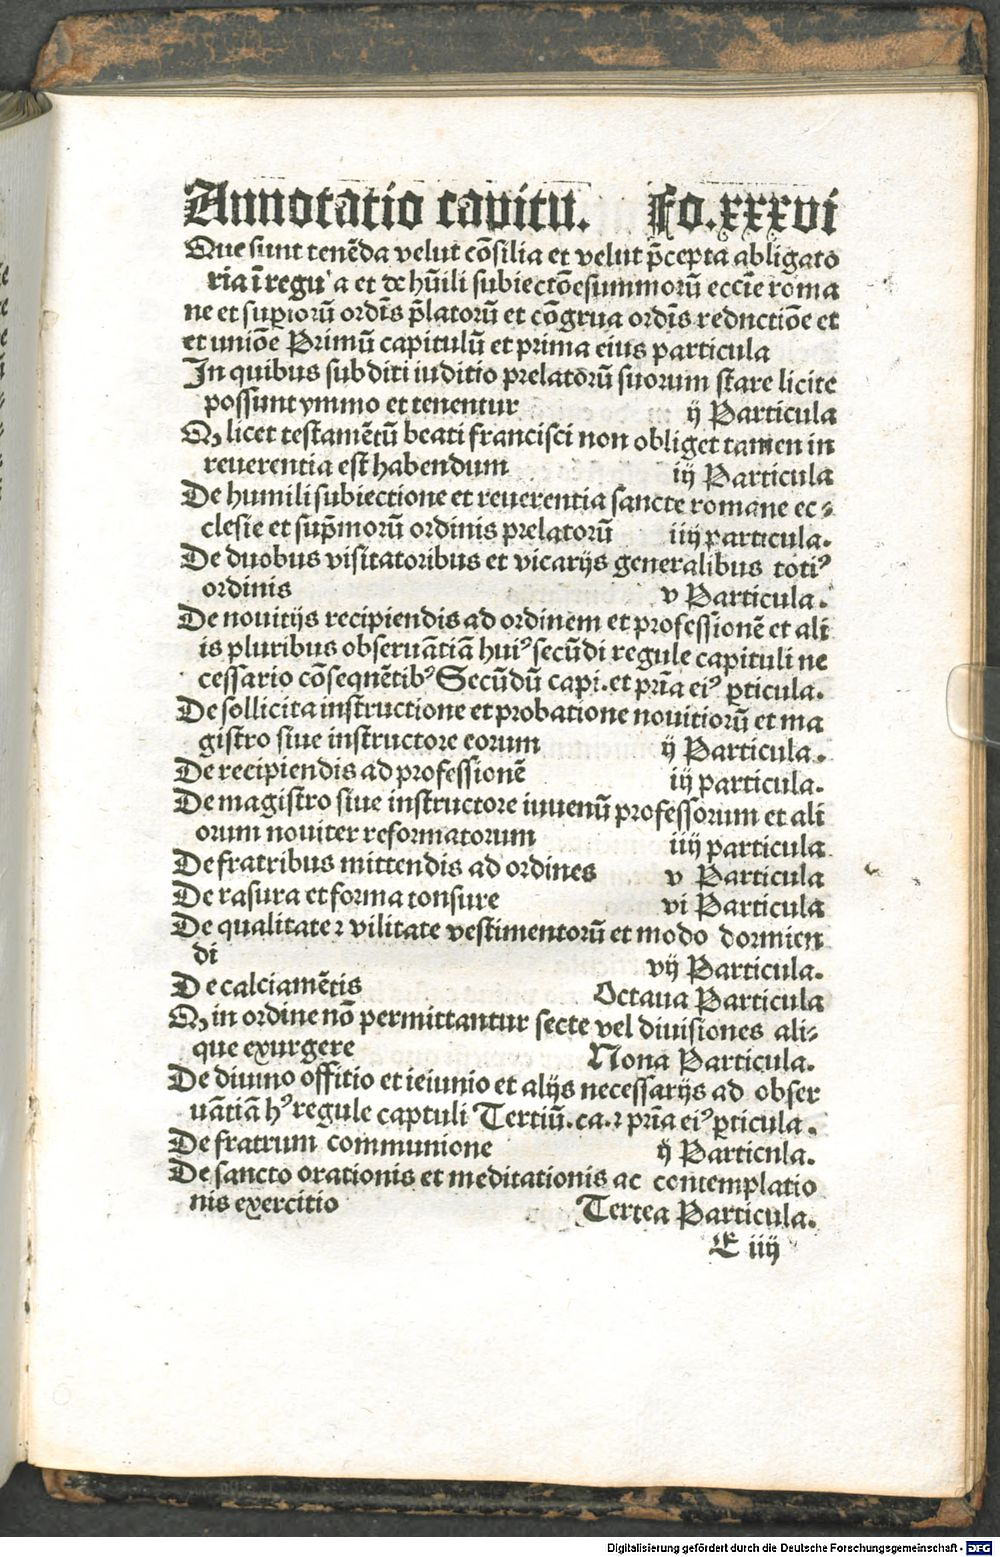 Annotatio capitu. Fo.xxxvi
Que sunt tenẽda velut cõsilia et velut p̃cepta abligato
ria ĩ regu a et de hũili subiectõe summorũ eccĩe roma
ne et supiorũ ordĩs p̃latorũ et cõgrua ordĩs reductiõe et
et uniõe Primũ capitulũ et prima eius particula
In quibus subditi iuditio prelatorũ suorum stare licite
possunt ymmo et tenentur ij Particula
Q, licet testamẽtũ beati francisci non obliget tamen in
reuerentia est habendum iij Particula
De humili subiectione et reuerentia sancte romane ec⸗
clesie et sup̃morũ ordinis prelatorũ iiij particula.
De duobus visitatoribus et vicarijs generalibus toti⁹
ordinis v Particula.
De nouitijs recipiendis ad ordinem et professionẽ et ali
is pluribus obseruãtiã hui⁹ secũdi regule capituli ne
cessario cõsequẽtib⁹ Secũdũ capi. et prĩa ei⁹ ꝑticula.
De sollicita instructione et probatione nouitiorũ et ma
gistro siue instructore eorum ij Particula.
De recipiendis ad professionẽ iij particula.
De magistro siue instructore iuuenũ professorum et ali
orum nouiter reformatorum iiij particula
De fratribus mittendis ad ordines v Particula
De rasura et forma tonsure vi Particula
De qualitate ꝛ vilitate vestimentorũ et modo dormien
di vij Particula.
De calciamẽtis Octaua Particula
Q, in ordine nõ permittantur secte vel diuisiones ali⸗
que exurgere Nona Particula.
De diuino offitio et ieiunio et alijs necessarijs ad obser
uãtiã h⁹ regule captuli Tertiũ. ca. ꝛ prĩa ei⁹ ꝑticula.
De fratrum communione ij Particula.
De sancto orationis et meditationis ac contemplatio
nis exercitio Tertea Particula.
E iiij
Digitalisierung gefördert durch die Deutsche Forschungsgemeinschaft - DFG